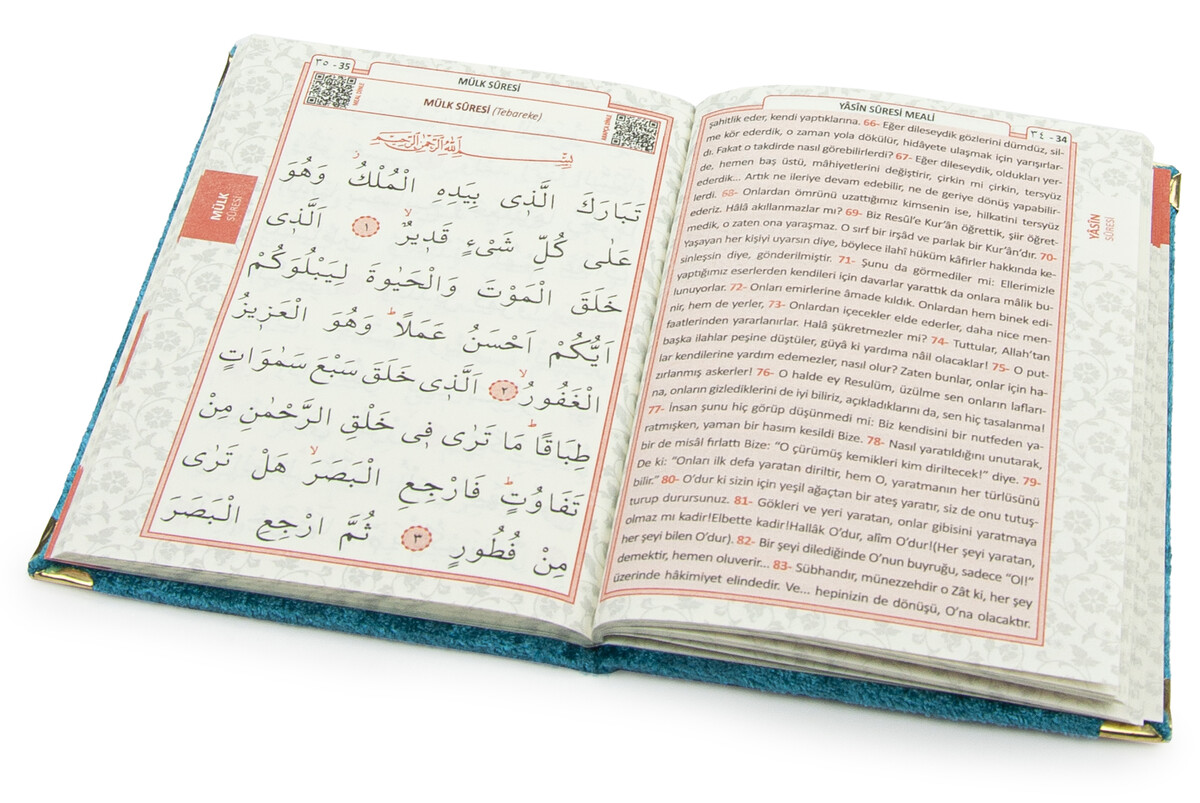 YÂSÎN SÛRESİ MEALİ
٣٤ - 34
şahitlik eder, kendi yaptıklarına. 66- Eğer dileseydik gözlerini dümdüz, sil-
me kör ederdik, o zaman yola dökülür, hidâyete ulaşmak için yarışırlar-
dı. Fakat o takdirde nasıl görebilirlerdi? 67- Eğer dileseydik, oldukları yer-
de, hemen baş üstü, mâhiyetlerini değiştirir, çirkin mi çirkin, tersyüz
ederdik... Artık ne ileriye devam edebilir, ne de geriye dönüş yapabilir-
lerdi. 68- Onlardan ömrünü uzattığımız kimsenin ise, hilkatini tersyüz
ederiz. Hâlâ akıllanmazlar mı? 69- Biz Resûl'e Kur'ân öğrettik, şiir öğret-
medik, o zaten ona yaraşmaz. O sırf bir irşâd ve parlak bir Kur'ân'dır. 70-
Yaşayan her kişiyi uyarsın diye, böylece ilahî hüküm kâfirler hakkında ke-
sinleşsin diye, gönderilmiştir. 71- Şunu da görmediler mi: Ellerimizle
yaptığımız eserlerden kendileri için davarlar yarattık da onlara mâlik bu-
lunuyorlar. 72- Onları emirlerine âmade kıldık. Onlardan hem binek edi-
nir, hem de yerler, 73- Onlardan içecekler elde ederler, daha nice men-
faatlerinden yararlanırlar. Halâ şükretmezler mi? 74- Tuttular, Allah'tan
başka ilahlar peşine düştüler, güyâ ki yardıma nâil olacaklar! 75- O put-
lar kendilerine yardım edemezler, nasıl olur? Zaten bunlar, onlar için ha-
zırlanmış askerler! 76- O halde ey Resulüm, üzülme sen onların lafları-
na, onların gizlediklerini de iyi biliriz, açıkladıklarını da, sen hiç tasalanma!
77- İnsan şunu hiç görüp düşünmedi mi: Biz kendisini bir nutfeden ya-
ratmışken, yaman bir hasım kesildi Bize. 78- Nasıl yaratıldığını unutarak,
bir de misâl fırlattı Bize: "O çürümüş kemikleri kim diriltecek!" diye. 79-
De ki: "Onları ilk defa yaratan diriltir, hem O, yaratmanın her türlüsünü
bilir." 80- O'dur ki sizin için yeşil ağaçtan bir ateş yaratır, siz de onu tutuş-
turup durursunuz. 81- Gökleri ve yeri yaratan, onlar gibisini yaratmaya
olmaz mı kadir!Elbette kadir!Hallâk O'dur, alîm O'dur!(Her şeyi yaratan,
her şeyi bilen O'dur). 82- Bir şeyi dilediğinde O'nun buyruğu, sadece "Ol!"
demektir, hemen oluverir... 83- Sübhandır, münezzehdir o Zât ki, her şey
üzerinde hâkimiyet elindedir. Ve... hepinizin de dönüşü, O'na olacaktır.
YÂSÎN
SÛRESİ
٣٥ - 35
MÜLK SÛRESİ
MÜLK SÛRESİ (Tebareke)
MEAL DİNLE
بِسْمِ اللّٰهِ الرَّحْمٰنِ الرَّحِيمِ
تَبَارَكَ الَّذ۪ى بِيَدِهِ الْمُلْكُۘ وَهُوَ
عَلٰى كُلِّ شَىْءٍ قَد۪يرٌۙ ١ اَلَّذ۪ى
خَلَقَ الْمَوْتَ وَالْحَيٰوةَ لِيَبْلُوَكُمْ
اَيُّكُمْ اَحْسَنُ عَمَلًاۜ وَهُوَ الْعَز۪يزُ
الْغَفُورُۙ ٢ اَلَّذ۪ى خَلَقَ سَبْعَ سَمٰوَاتٍ
طِبَاقًاۜ مَا تَرٰى ف۪ى خَلْقِ الرَّحْمٰنِ مِنْ
تَفَاوُتٍۜ فَارْجِعِ الْبَصَرَۙ هَلْ تَرٰى
مِنْ فُطُورٍ ٣ ثُمَّ ارْجِعِ الْبَصَرَ
MÜLK
SÛRESİ